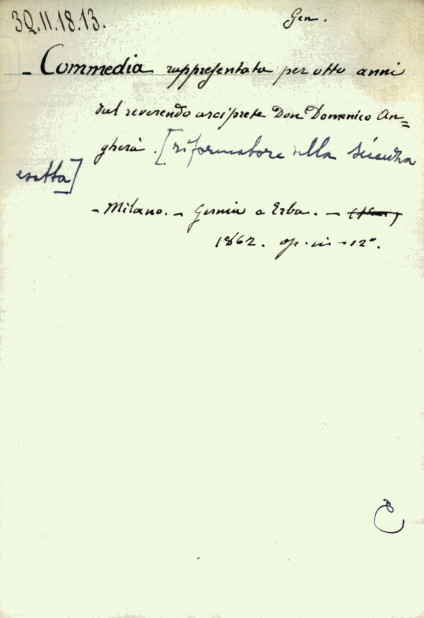 3Q.II.18.13.
Gen.
- Commedia rappresentata per otto anni
dal reverendo arciprete Don Domenico An=
gherà. [riformatore nella scienza
esatta]
- Milano. - Gernia e Erba. -
1862. op. in - 12°.